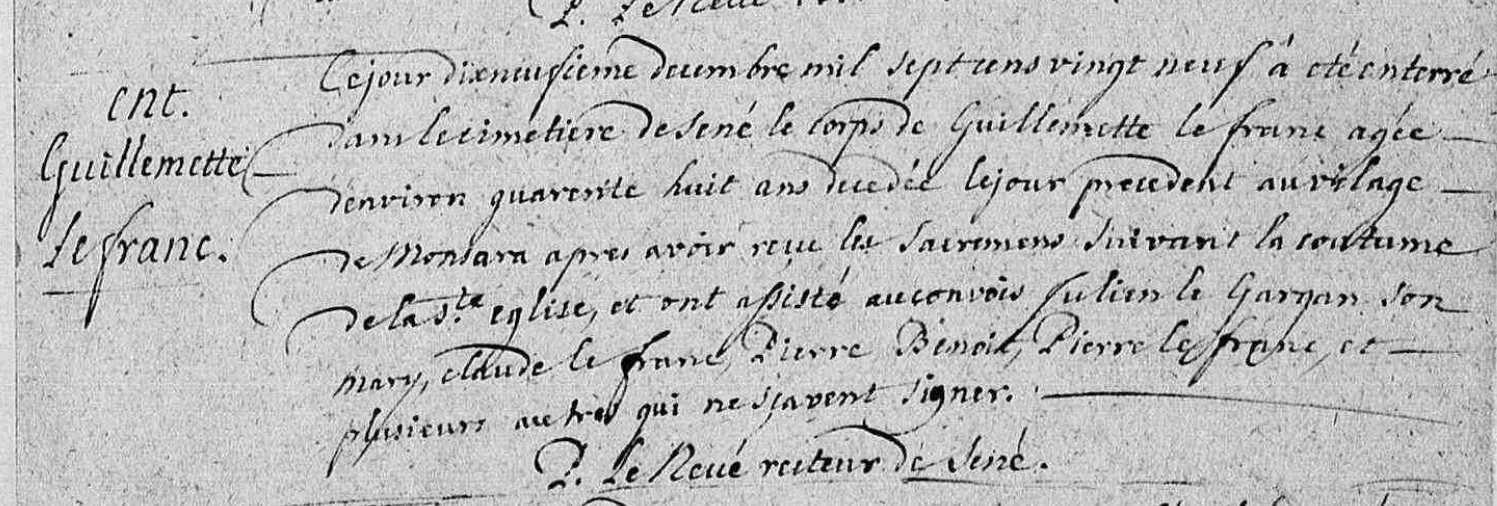 P. Le Neué
ent.
Guillemette
Le franc.
Ce jour dixneufieme decembre mil sept cens vingt neuf à eté enterré
dans le cimetiere de sené le corps de Guillemette le franc agée
denviron quarente huit ans decedée le jour precedent au vilage
de Monsara apres avoir reçu les sacremens suivant la coutume
de la s.te eglise, et ont assisté au convois Julien le Gargan son
mary, claude le franc, Pierre Benoit, Pierre le franc, et
plusieurs autres qui ne sçavent signer.
P. Le Neué recteur de Sené.